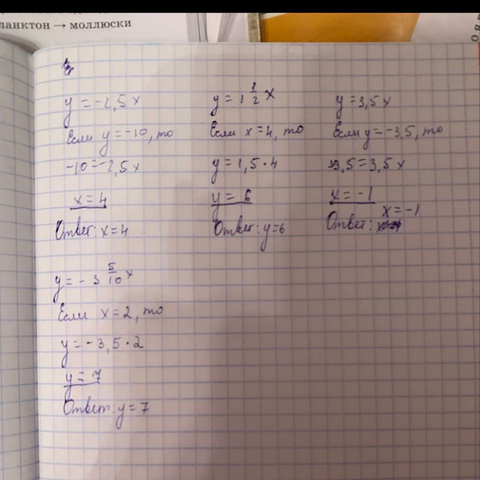 планктон → моллюски
3
y = -2,5x
Если y = -10, то
-10 = -2,5x
x = 4
Ответ: x = 4
y = 1 1/2 x
Если x = 4, то
y = 1,5 · 4
y = 6
Ответ: y = 6
y = 3,5x
Если y = -3,5, то
-3,5 = 3,5x
x = -1
Ответ: x = -1
y = -3 5/10 x
Если x = 2, то
y = -3,5 · 2
y = 7
Ответ: y = 7